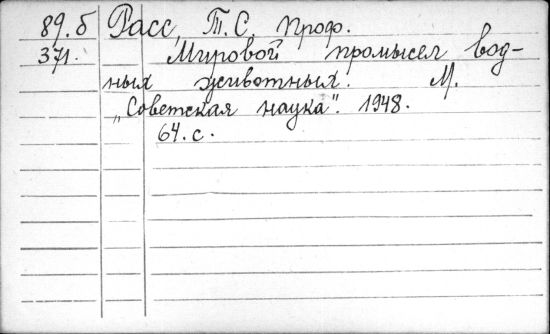 89.б Расс, Т.С. проф.
371. Мировой промысел вод-
ных животных. М.
„Советская наука". 1948.
64.с.